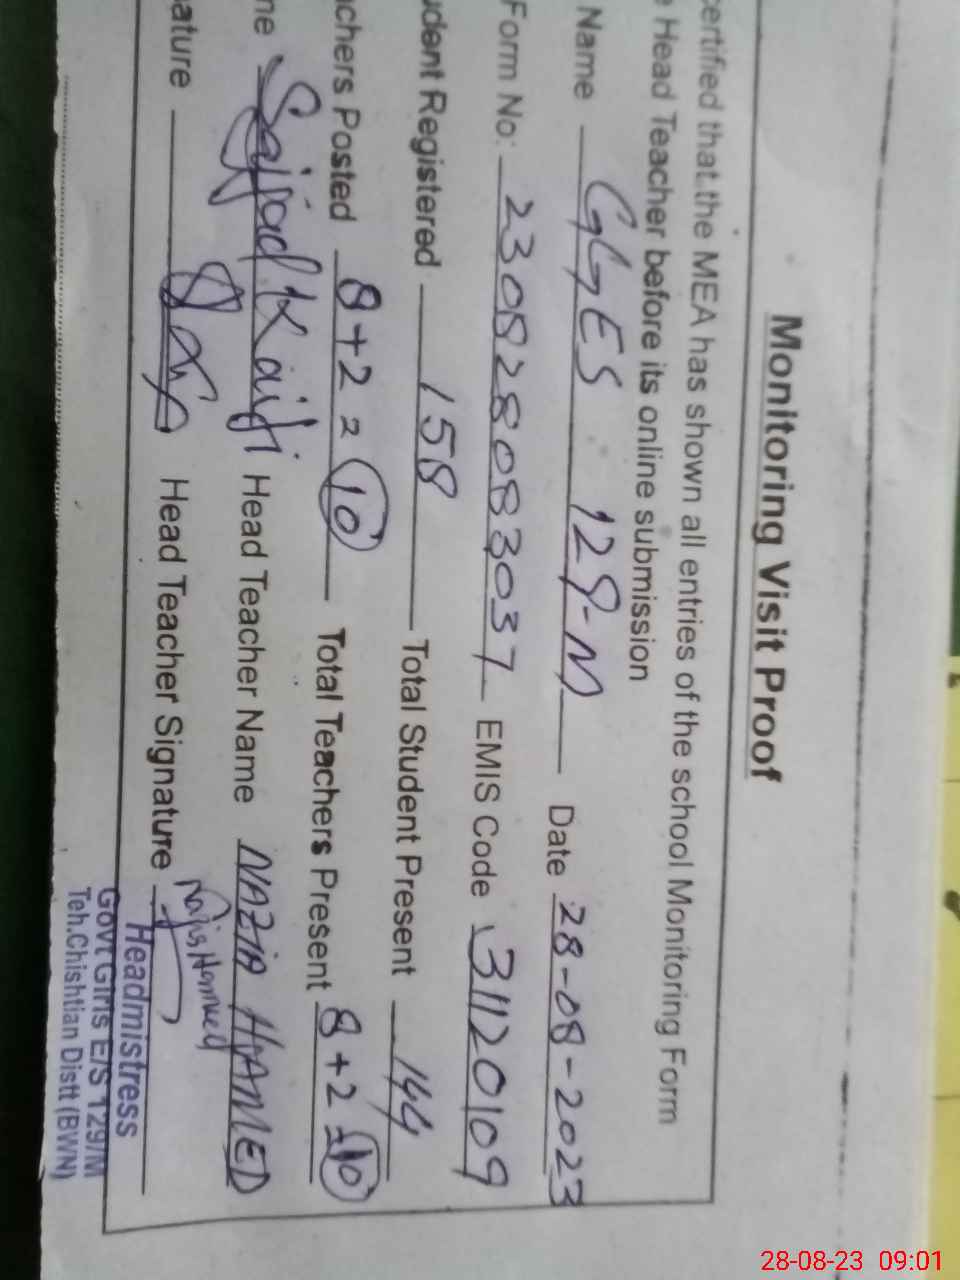 Monitoring Visit Proof
certified that the MEA has shown all entries of the school Monitoring Form
Head Teacher before its online submission
Name GGES 129-M Date 28-08-2023
Form No: 230828083037 EMIS Code 31120109
udent Registered 158 Total Student Present 144
achers Posted 8+2=10 Total Teachers Present 8+2=10
me Sajjad Head Teacher Name NAZIA HAMED
ature Head Teacher Signature
Headmistress
Govt Girls E/S 129/M
Teh.Chishtian Distt (BWN)
28-08-23 09:01